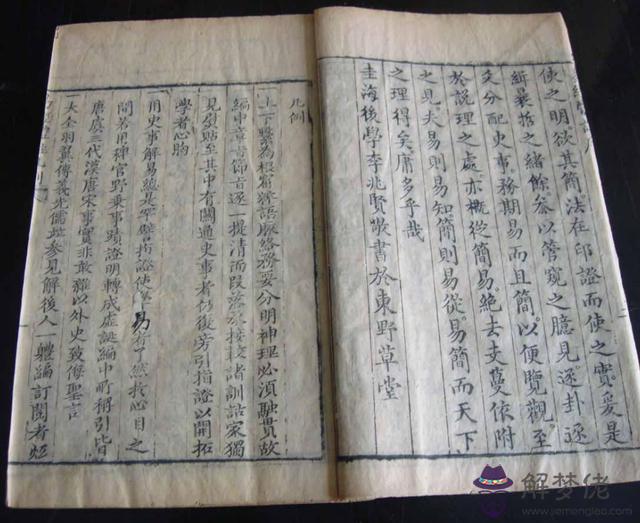 使之明欲其簡法在印證而使之實爰是
緝暴括之緒餘叅以管窺之臆見逐卦逐
爻分配史事務期易而且簡以便覽觀至
於說理之處亦概從簡易絶去支蔓依附
之見夫易則易知簡則易從易簡而天下
之理得矣庸多乎哉
圭海後學李兆賢敬書於東野草堂
凡例
一上下繫為根窟辭語脈絡務要分明神理必須融貫故
編中章旨節旨逐一提清而段落承接較諸訓詁家獨
見剴貼至其中有關通史事者仍復旁引指證以開拓
學者心胸
一用史事解易總是罕譬指證使學易者了然於心目之
間若用稗官野乗事蹟證明轉成虛誕編中所稱引皆
唐虞三代漢唐宋事實非敢雜以外史致侮聖言
一大全羽翼傳義先儒址參見解後人一軆編訂閱者
解梦佬
www.jiemenglao.com